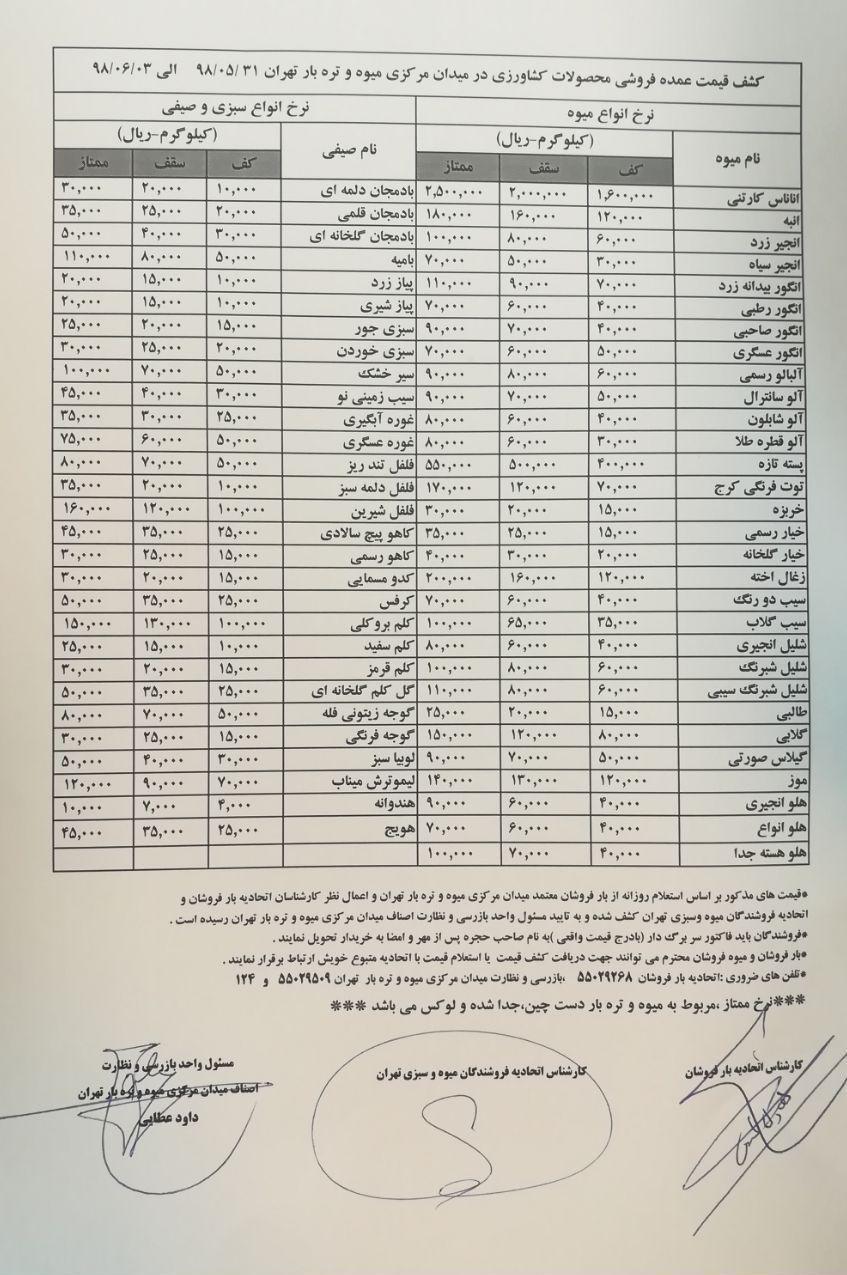 کشف قیمت عمده فروشی محصولات کشاورزی در میدان مرکزی میوه و تره بار تهران ۹۸/۰۵/۳۱ الی ۹۸/۰۶/۰۳
نرخ انواع میوه نرخ انواع سبزی و صیفی
نام میوه (کیلوگرم-ریال) نام صیفی (کیلوگرم-ریال)
کف سقف ممتاز کف سقف ممتاز
اناناس کارتنی ۱,۶۰۰,۰۰۰ ۲,۰۰۰,۰۰۰ ۲,۵۰۰,۰۰۰ بادمجان دلمه ای ۱۰,۰۰۰ ۲۰,۰۰۰ ۳۰,۰۰۰
انبه ۱۲۰,۰۰۰ ۱۶۰,۰۰۰ ۱۸۰,۰۰۰ بادمجان قلمی ۲۰,۰۰۰ ۲۵,۰۰۰ ۳۵,۰۰۰
انجیر زرد ۶۰,۰۰۰ ۸۰,۰۰۰ ۱۰۰,۰۰۰ بادمجان گلخانه ای ۳۰,۰۰۰ ۴۰,۰۰۰ ۵۰,۰۰۰
انجیر سیاه ۳۰,۰۰۰ ۵۰,۰۰۰ ۷۰,۰۰۰ بامیه ۵۰,۰۰۰ ۸۰,۰۰۰ ۱۱۰,۰۰۰
انگور بیدانه زرد ۷۰,۰۰۰ ۹۰,۰۰۰ ۱۱۰,۰۰۰ پیاز زرد ۱۰,۰۰۰ ۱۵,۰۰۰ ۲۰,۰۰۰
انگور رطبی ۴۰,۰۰۰ ۶۰,۰۰۰ ۷۰,۰۰۰ پیاز شیری ۱۰,۰۰۰ ۱۵,۰۰۰ ۲۰,۰۰۰
انگور صاحبی ۴۰,۰۰۰ ۷۰,۰۰۰ ۹۰,۰۰۰ سبزی جور ۱۵,۰۰۰ ۲۰,۰۰۰ ۲۵,۰۰۰
انگور عسگری ۵۰,۰۰۰ ۶۰,۰۰۰ ۷۰,۰۰۰ سبزی خوردن ۲۰,۰۰۰ ۲۵,۰۰۰ ۳۰,۰۰۰
آلبالو رسمی ۶۰,۰۰۰ ۸۰,۰۰۰ ۹۰,۰۰۰ سیر خشک ۵۰,۰۰۰ ۷۰,۰۰۰ ۱۰۰,۰۰۰
آلو سانترال ۵۰,۰۰۰ ۷۰,۰۰۰ ۹۰,۰۰۰ سیب زمینی نو ۳۰,۰۰۰ ۴۰,۰۰۰ ۴۵,۰۰۰
آلو شابلون ۴۰,۰۰۰ ۶۰,۰۰۰ ۸۰,۰۰۰ غوره آبگیری ۲۵,۰۰۰ ۳۰,۰۰۰ ۳۵,۰۰۰
آلو قطره طلا ۳۰,۰۰۰ ۶۰,۰۰۰ ۸۰,۰۰۰ غوره عسگری ۵۰,۰۰۰ ۶۰,۰۰۰ ۷۵,۰۰۰
پسته تازه ۴۰۰,۰۰۰ ۵۰۰,۰۰۰ ۵۵۰,۰۰۰ فلفل تند ریز ۵۰,۰۰۰ ۷۰,۰۰۰ ۸۰,۰۰۰
توت فرنگی کرج ۷۰,۰۰۰ ۱۲۰,۰۰۰ ۱۷۰,۰۰۰ فلفل دلمه سبز ۱۰,۰۰۰ ۲۰,۰۰۰ ۳۵,۰۰۰
خربزه ۱۵,۰۰۰ ۲۰,۰۰۰ ۳۰,۰۰۰ فلفل شیرین ۱۰۰,۰۰۰ ۱۲۰,۰۰۰ ۱۶۰,۰۰۰
خیار رسمی ۱۵,۰۰۰ ۲۵,۰۰۰ ۳۵,۰۰۰ کاهو پیچ سالادی ۲۵,۰۰۰ ۳۵,۰۰۰ ۴۵,۰۰۰
خیار گلخانه ۲۰,۰۰۰ ۳۰,۰۰۰ ۴۰,۰۰۰ کاهو رسمی ۱۵,۰۰۰ ۲۵,۰۰۰ ۳۰,۰۰۰
زغال اخته ۱۲۰,۰۰۰ ۱۶۰,۰۰۰ ۲۰۰,۰۰۰ کدو مسمایی ۱۵,۰۰۰ ۲۰,۰۰۰ ۳۰,۰۰۰
سیب دو رنگ ۴۰,۰۰۰ ۶۰,۰۰۰ ۷۰,۰۰۰ کرفس ۲۵,۰۰۰ ۳۵,۰۰۰ ۵۰,۰۰۰
سیب گلاب ۳۵,۰۰۰ ۶۵,۰۰۰ ۱۰۰,۰۰۰ کلم بروکلی ۱۰۰,۰۰۰ ۱۳۰,۰۰۰ ۱۵۰,۰۰۰
شلیل انجیری ۴۰,۰۰۰ ۶۰,۰۰۰ ۸۰,۰۰۰ کلم سفید ۱۰,۰۰۰ ۱۵,۰۰۰ ۲۵,۰۰۰
شلیل شبرنگ ۶۰,۰۰۰ ۸۰,۰۰۰ ۱۰۰,۰۰۰ کلم قرمز ۱۵,۰۰۰ ۲۰,۰۰۰ ۳۰,۰۰۰
شلیل شبرنگ سیبی ۶۰,۰۰۰ ۸۰,۰۰۰ ۱۱۰,۰۰۰ گل کلم گلخانه ای ۲۵,۰۰۰ ۳۵,۰۰۰ ۵۰,۰۰۰
طالبی ۱۵,۰۰۰ ۲۰,۰۰۰ ۲۵,۰۰۰ گوجه زیتونی فله ۵۰,۰۰۰ ۷۰,۰۰۰ ۸۰,۰۰۰
گلابی ۸۰,۰۰۰ ۱۲۰,۰۰۰ ۱۵۰,۰۰۰ گوجه فرنگی ۱۵,۰۰۰ ۲۵,۰۰۰ ۳۰,۰۰۰
گیلاس صورتی ۵۰,۰۰۰ ۷۰,۰۰۰ ۹۰,۰۰۰ لوبیا سبز ۳۰,۰۰۰ ۴۰,۰۰۰ ۵۰,۰۰۰
موز ۱۲۰,۰۰۰ ۱۳۰,۰۰۰ ۱۴۰,۰۰۰ لیموترش میناب ۷۰,۰۰۰ ۹۰,۰۰۰ ۱۲۰,۰۰۰
هلو انجیری ۴۰,۰۰۰ ۶۰,۰۰۰ ۹۰,۰۰۰ هندوانه ۴,۰۰۰ ۷,۰۰۰ ۱۰,۰۰۰
هلو انواع ۴۰,۰۰۰ ۶۰,۰۰۰ ۷۰,۰۰۰ هویج ۲۵,۰۰۰ ۳۵,۰۰۰ ۴۵,۰۰۰
هلو هسته جدا ۴۰,۰۰۰ ۷۰,۰۰۰ ۱۰۰,۰۰۰
*قیمت های مذکور بر اساس استعلام روزانه از بار فروشان معتمد میدان مرکزی میوه و تره بار تهران و اعمال نظر کارشناسان اتحادیه بار فروشان و
اتحادیه فروشندگان میوه وسبزی تهران کشف شده و به تایید مسئول واحد بازرسی و نظارت اصناف میدان مرکزی میوه و تره بار تهران رسیده است .
*فروشندگان باید فاکتور سر برگ دار (بادرج قیمت واقعی )به نام صاحب حجره پس از مهر و امضا به خریدار تحویل نمایند .
*بار فروشان و میوه فروشان محترم می توانند جهت دریافت کشف قیمت یا استعلام قیمت با اتحادیه متبوع خویش ارتباط برقرار نمایند .
*تلفن های ضروری :اتحادیه بار فروشان ۵۵۰۲۹۲۶۸ ،بازرسی و نظارت میدان مرکزی میوه و تره بار تهران ۵۵۰۲۹۵۰۹ و ۱۲۴
***نرخ ممتاز ،مربوط به میوه و تره بار دست چین،جدا شده و لوکس می باشد ***
کارشناس اتحادیه بار فروشان کارشناس اتحادیه فروشندگان میوه و سبزی تهران مسئول واحد بازرسی و نظارت
اصناف میدان مرکزی میوه و تره بار تهران
داود عطایی